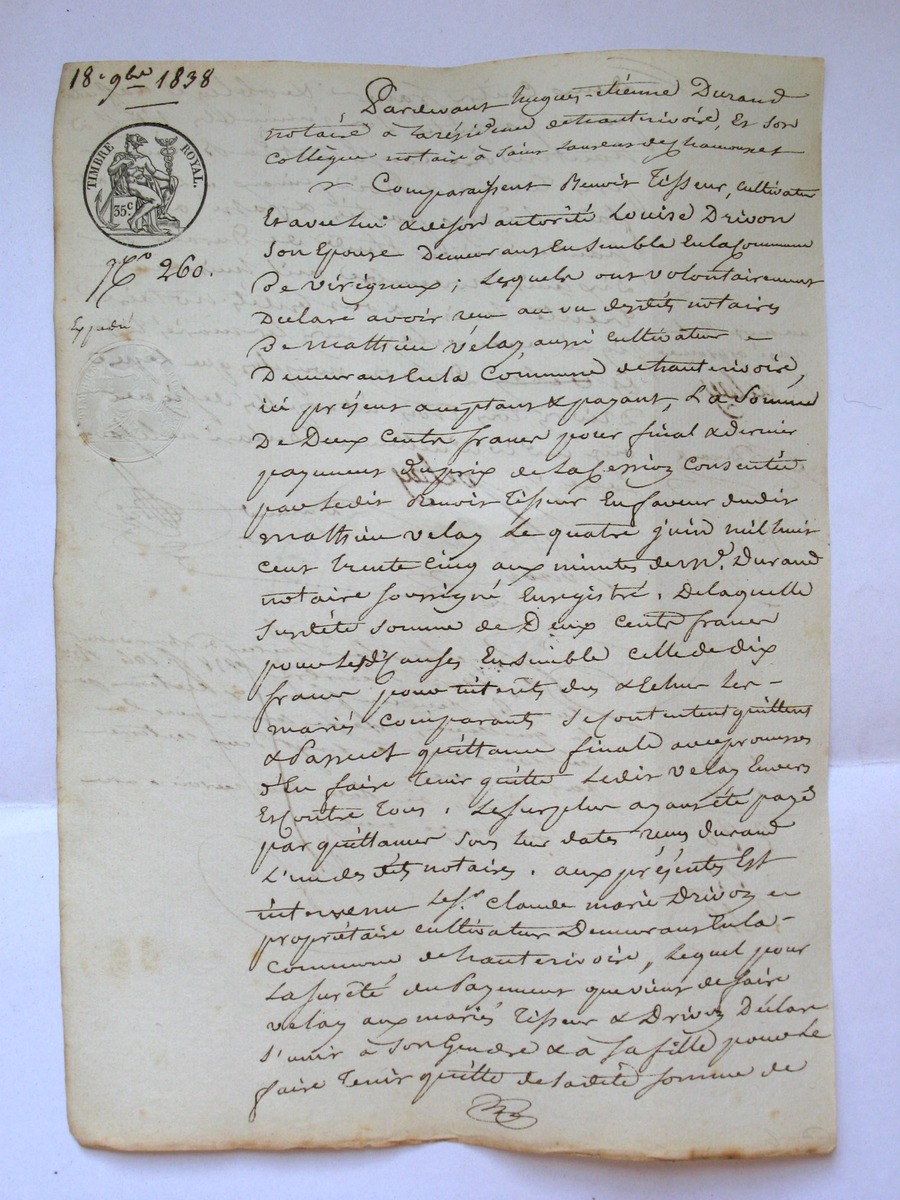 18 9bre 1838
TIMBRE ROYAL.
35 c
No 260.
Expédié
Pardevant hugues-étienne Durand
notaire à la résidence de hauterivoire, Et son
Collègue notaire à Saint Laurent de chamousset
Comparaissent Benoit Tisseur, cultivateur
Et avec lui & de son autorité Louise Drivon
Son Epouse Demeurans Ensemble En la Commune
De virigneux ; Lesquels ont volontairement
Déclaré avoir reçu au vu desdits notaires
De mathieu vélay aussi cultivateur
Demeurant En la Commune de hauterivoire,
ici présent acceptant & payant, La Somme
De Deux Cents francs pour final & dernier
payement du prix de la Cession Consentie
par Ledit Benoit Tisseur En faveur dudit
mathieu velay Le quatre juin mil huit
cent trente cinq aux minutes de Me. Durand
notaire soussigné Enregistré. De laquelle
susdite somme de Deux Cents francs
pour Les causes Ensemble celle de dix
francs pour intérêts dus & Echus Les
mariés comparants se contentent quittent
& Passent quittance finale avec promesse
d'En faire tenir quitte Ledit velay Envers
Et Contre Tous. Le surplus ayant été payé
par quittances sous leur dates reçus durand
L'un desdits notaires. aux présentes Est
intervenu Le sr. Claude marie Drivon
propriétaire cultivateur Demeurant En la
Commune de hauterivoire, Lequel pour
La sureté du Payement que vient de faire
velay aux mariés Tisseur & Drivon Déclare
s'unir à son Gendre & à sa fille pour Le
faire tenir quitte de ladite somme de